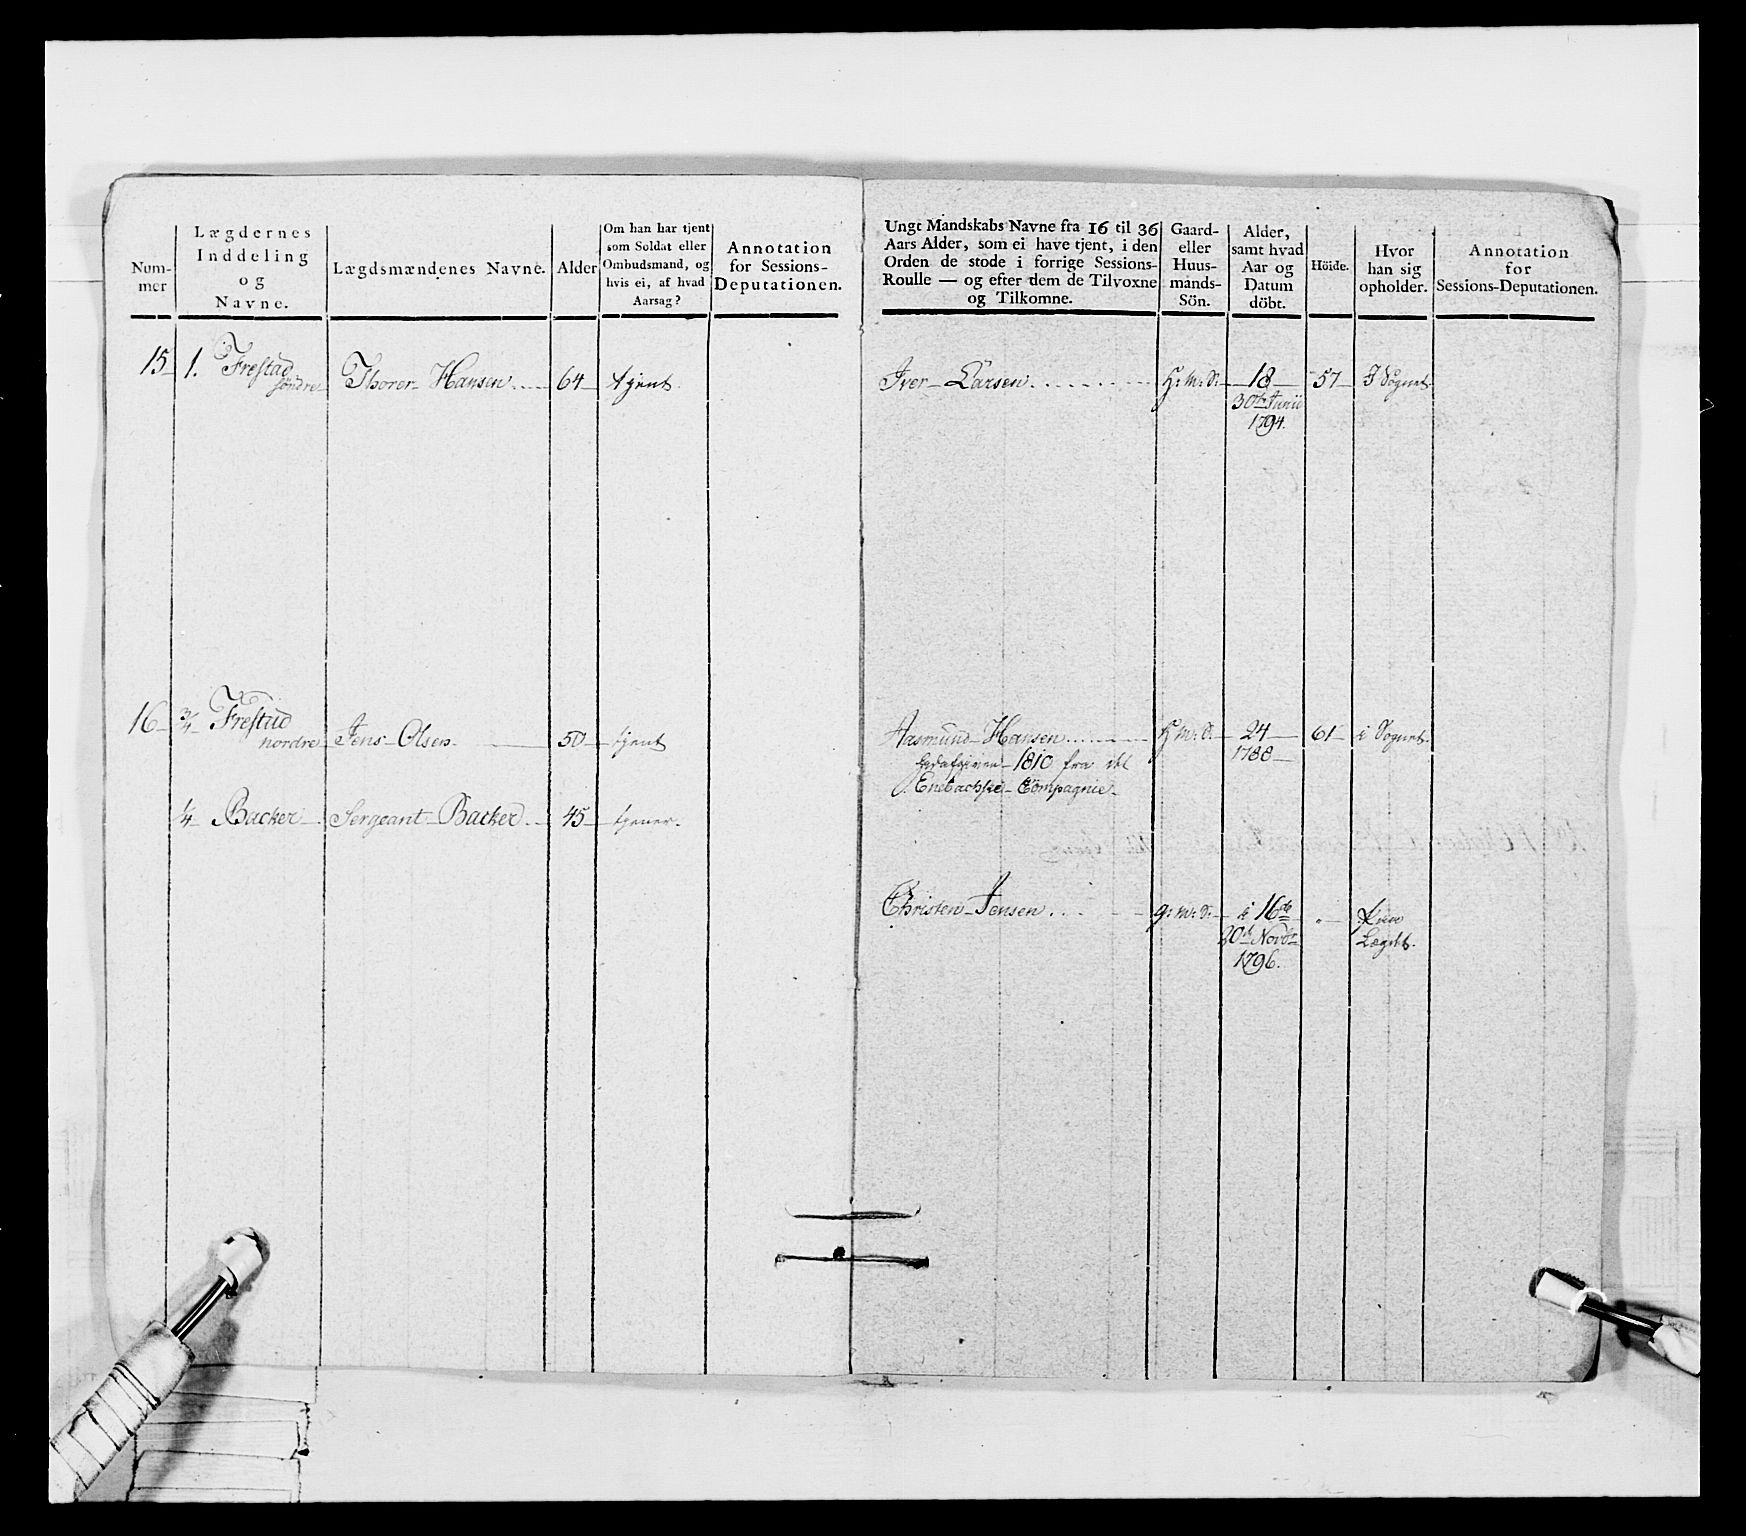 Num-
mer
Lægdernes
Inddeling
og
Navne.
Lægdsmændenes Navne.
Alder
Om han har tjent
som Soldat eller
Ombudsmand, og
hvis ei, af hvad
Aarsag?
Annotation
for Sessions-
Deputationen.
15 1. Frestad
söndre
Thorer Hansen
64
tjent.
16 3/4 Frestad
nordre
Jens Olsen
50
tjent
1/4 Backer
Sergeant Backer
45
tjener.
Ungt Mandskabs Navne fra 16 til 36
Aars Alder, som ei have tjent, i den
Orden de stode i forrige Sessions-
Roulle — og efter dem de Tilvoxne
og Tilkomne.
Gaard-
eller
Huus-
mands-
Sön.
Alder,
samt hvad
Aar og
Datum
döbt.
Höide.
Hvor
han sig
opholder.
Annotation
for
Sessions-Deputationen.
Iver Larsen
H: M: S:
18
30te Junii
1794.
57
I Sognet
Aasmund Hansen
H: M: S:
24
1788
61
i Sognet.
1810 fra det
Enebachske Compagnie
Christen Jensen
g: M: S:
i 16de
20de Novbr
1796.
Lægdet.